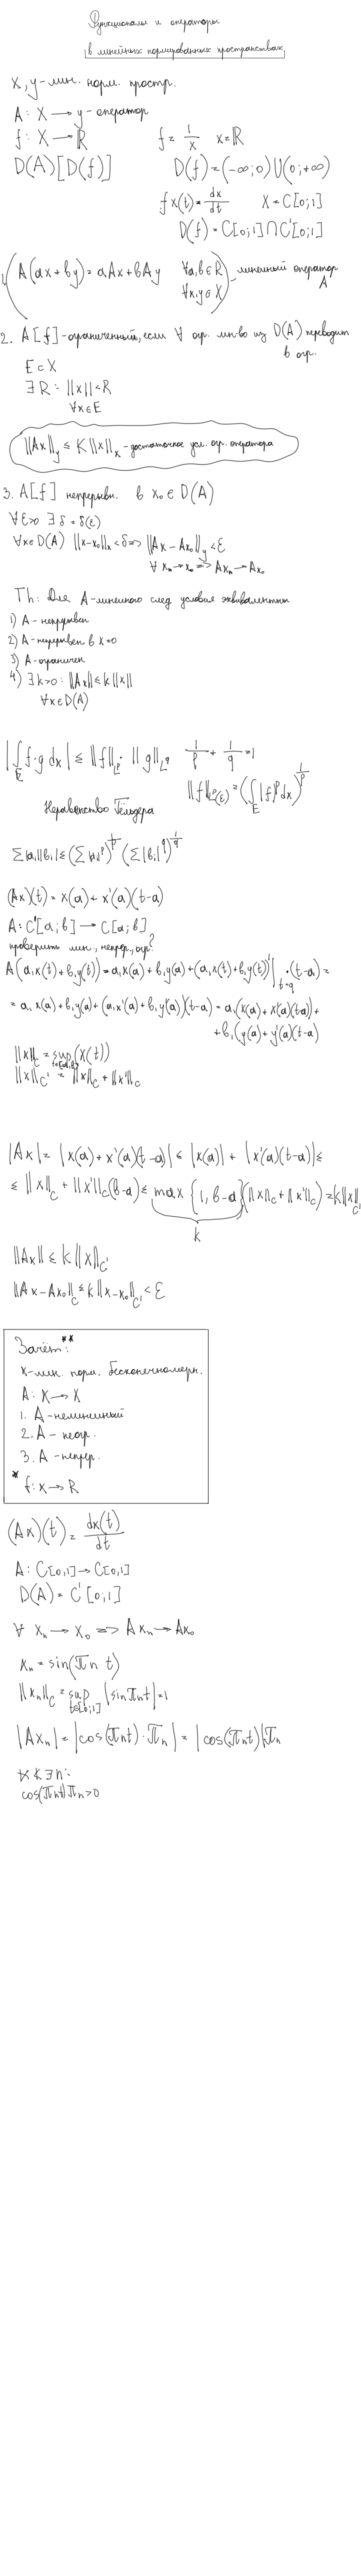 Функционалы и операторы
в линейных нормированных пространствах
X, y - лин. норм. простр.
A: X → y - оператор
f: X → ℝ    f = 1/x    x = ℝ
D(A) [D(f)]    D(f) = (-∞; 0) ∪ (0; +∞)
f x(t) = dx/dt    X = C[0;1]
D(f) = C[0;1] ∩ C'[0;1]
1. (A(ax + by) = aAx + bAy    ∀a,b ∈ R    ∀x,y ∈ X) - линейный оператор A
2. A [f] - ограниченный, если ∀ огр. мн-во из D(A) переводит
в огр.
E ⊂ X
∃ R: ||x|| < R
∀x ∈ E
||Ax||_y ≤ K ||x||_x - достаточное усл. огр. оператора
3. A[f] непрерывн. в x₀ ∈ D(A)
∀ε>0 ∃ δ = δ(ε)
∀x ∈ D(A) ||x-x₀||_x < δ => ||Ax - Ax₀||_y < ε
∀ x_n → x₀ => Ax_n → Ax₀
Th: Для A-линейного след условия эквивалентны
1) A - непрерывен
2) A - непрерывен в x=0
3) A - ограничен
4) ∃ k>0: ||Ax|| ≤ k ||x||
∀x ∈ D(A)
|∫_E f·g dx| ≤ ||f||_{L^p} · ||g||_{L^q}    1/p + 1/q = 1
||f||_{L^p(E)} = (∫_E |f|^p dx)^{1/p}
Неравенство Гёльдера
∑|a_i||b_i| ≤ (∑|a_i|^p)^{1/p} (∑|b_i|^q)^{1/q}
(Ax)(t) = x(a) + x'(a)(t-a)
A: C'[a; b] → C[a; b]
проверить лин., непрер., огр?
A(a₁x(t) + b₁y(t)) = a₁x(a) + b₁y(a) + (a₁x(t) + b₁y(t))'|_{t=a} · (t-a) =
= a₁x(a) + b₁y(a) + (a₁x'(a) + b₁y'(a))(t-a) = a₁(x(a) + x'(a)(t-a)) +
+ b₁(y(a) + y'(a)(t-a))
||x||_C = sup_{t∈[a,b]} (x(t))
||x||_{C'} = ||x||_C + ||x'||_C
|Ax| = |x(a) + x'(a)(t-a)| ≤ |x(a)| + |x'(a)(t-a)| ≤
≤ ||x||_C + ||x'||_C (b-a) ≤ max {1, b-a} (||x||_C + ||x'||_C) = k||x||_{C'}
k
||Ax|| ≤ k ||x||_{C'}
||Ax - Ax₀||_C ≤ k ||x - x₀||_{C'} < ε
Зачёт: **
x - лин. норм. бесконечномерн.
A: X → X
1. A - нелинейный
2. A - неогр.
3. A - непрер.
* f: x → R
(Ax)(t) = dx(t)/dt
A: C[0,1] → C[0,1]
D(A) = C'[0;1]
∀ x_n → x₀ => Ax_n → Ax₀
x_n = sin(πn t)
||x_n||_C = sup_{t∈[0;1]} |sin πnt| = 1
|Ax_n| = |cos(πnt) · πn| = |cos(πnt)|πn
∀k ∃n:
cos(πnt)πn > 0